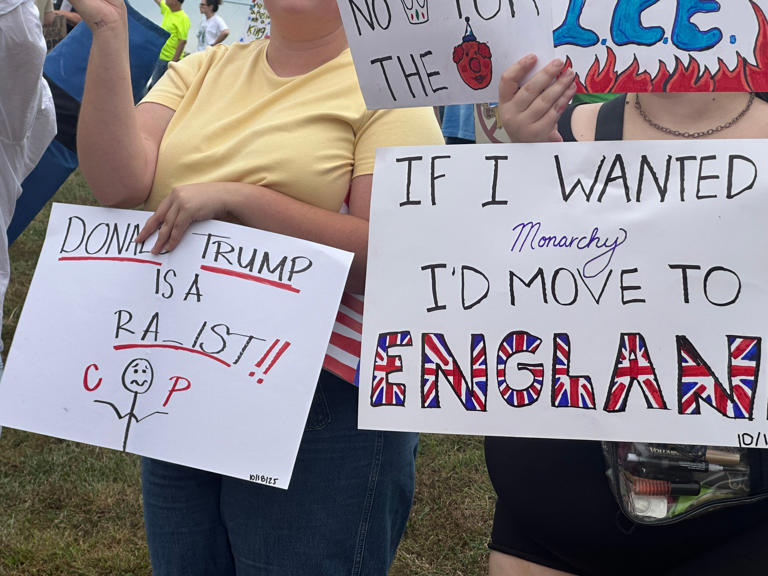 NO FOR
THE
I.C.E.
KING
DONALD TRUMP
IS A
RA_IST!!
C P
10/18/25
IF I WANTED
Monarchy
I'D MOVE TO
ENGLAN
10/1